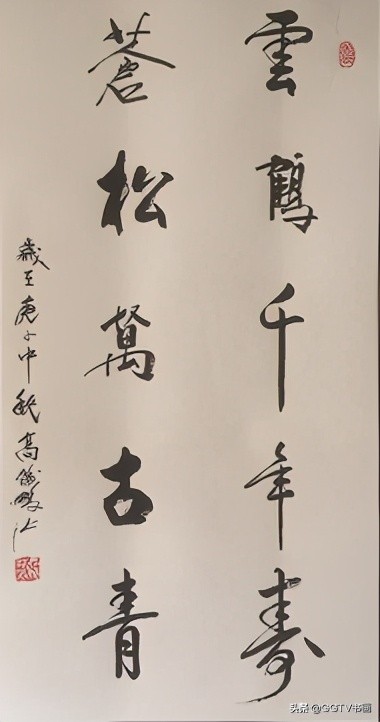 雲鶴千年壽
蒼松萬古青
歲在庚子中秋高
头条@GGTV书画